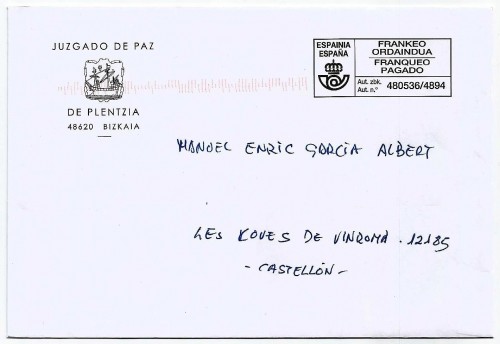 JUZGADO DE PAZ
DE PLENTZIA
48620 BIZKAIA
ESPAINIA
ESPAÑA
FRANKEO
ORDAINDUA
FRANQUEO
PAGADO
Aut. zbk.
Aut. n.º 480536/4894
MANUEL ENRIC GARCÍA ALBERT
LES KOVES DE VINROMÀ . 12185
- CASTELLÓN -